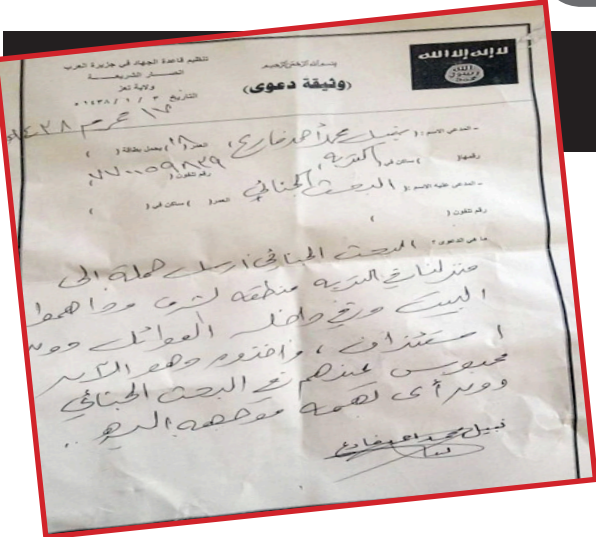 تنظيم قاعدة الجهاد في جزيرة العرب
أنصار الشريعة
ولاية تعز
التاريخ ٣ / ١ / ١٤٣٨ هـ
١٧ محرم ١٤٣٨
بسم الله الرحمن الرحيم
(وثيقة دعوى)
لا إله إلا الله
الله
رسول
محمد
- المدعي الاسم: ( نبيل محمد أحمد فارع ) العمر ( ١٨ ) يحمل بطاقة ( )
رقمها ( ) ساكن في ( التربه ) رقم تلفون (
- المدعى عليه الاسم: ( البحث الجنائي ) العمر ( ) ساكن في ( )
رقم تلفون ( )
ما هي الدعوى: البحث الجنائي ارسلت حملة الى
منزلنا في التربه منطقه شرف وداهموا
البيت وفي داخله العوائل ودون
استئذان ، واخذوه وهو الآن
محبوس عندهم في البحث الجنائي
ودون أي تهمه موجهه اليه ..
نبيل محمد احمد فارع